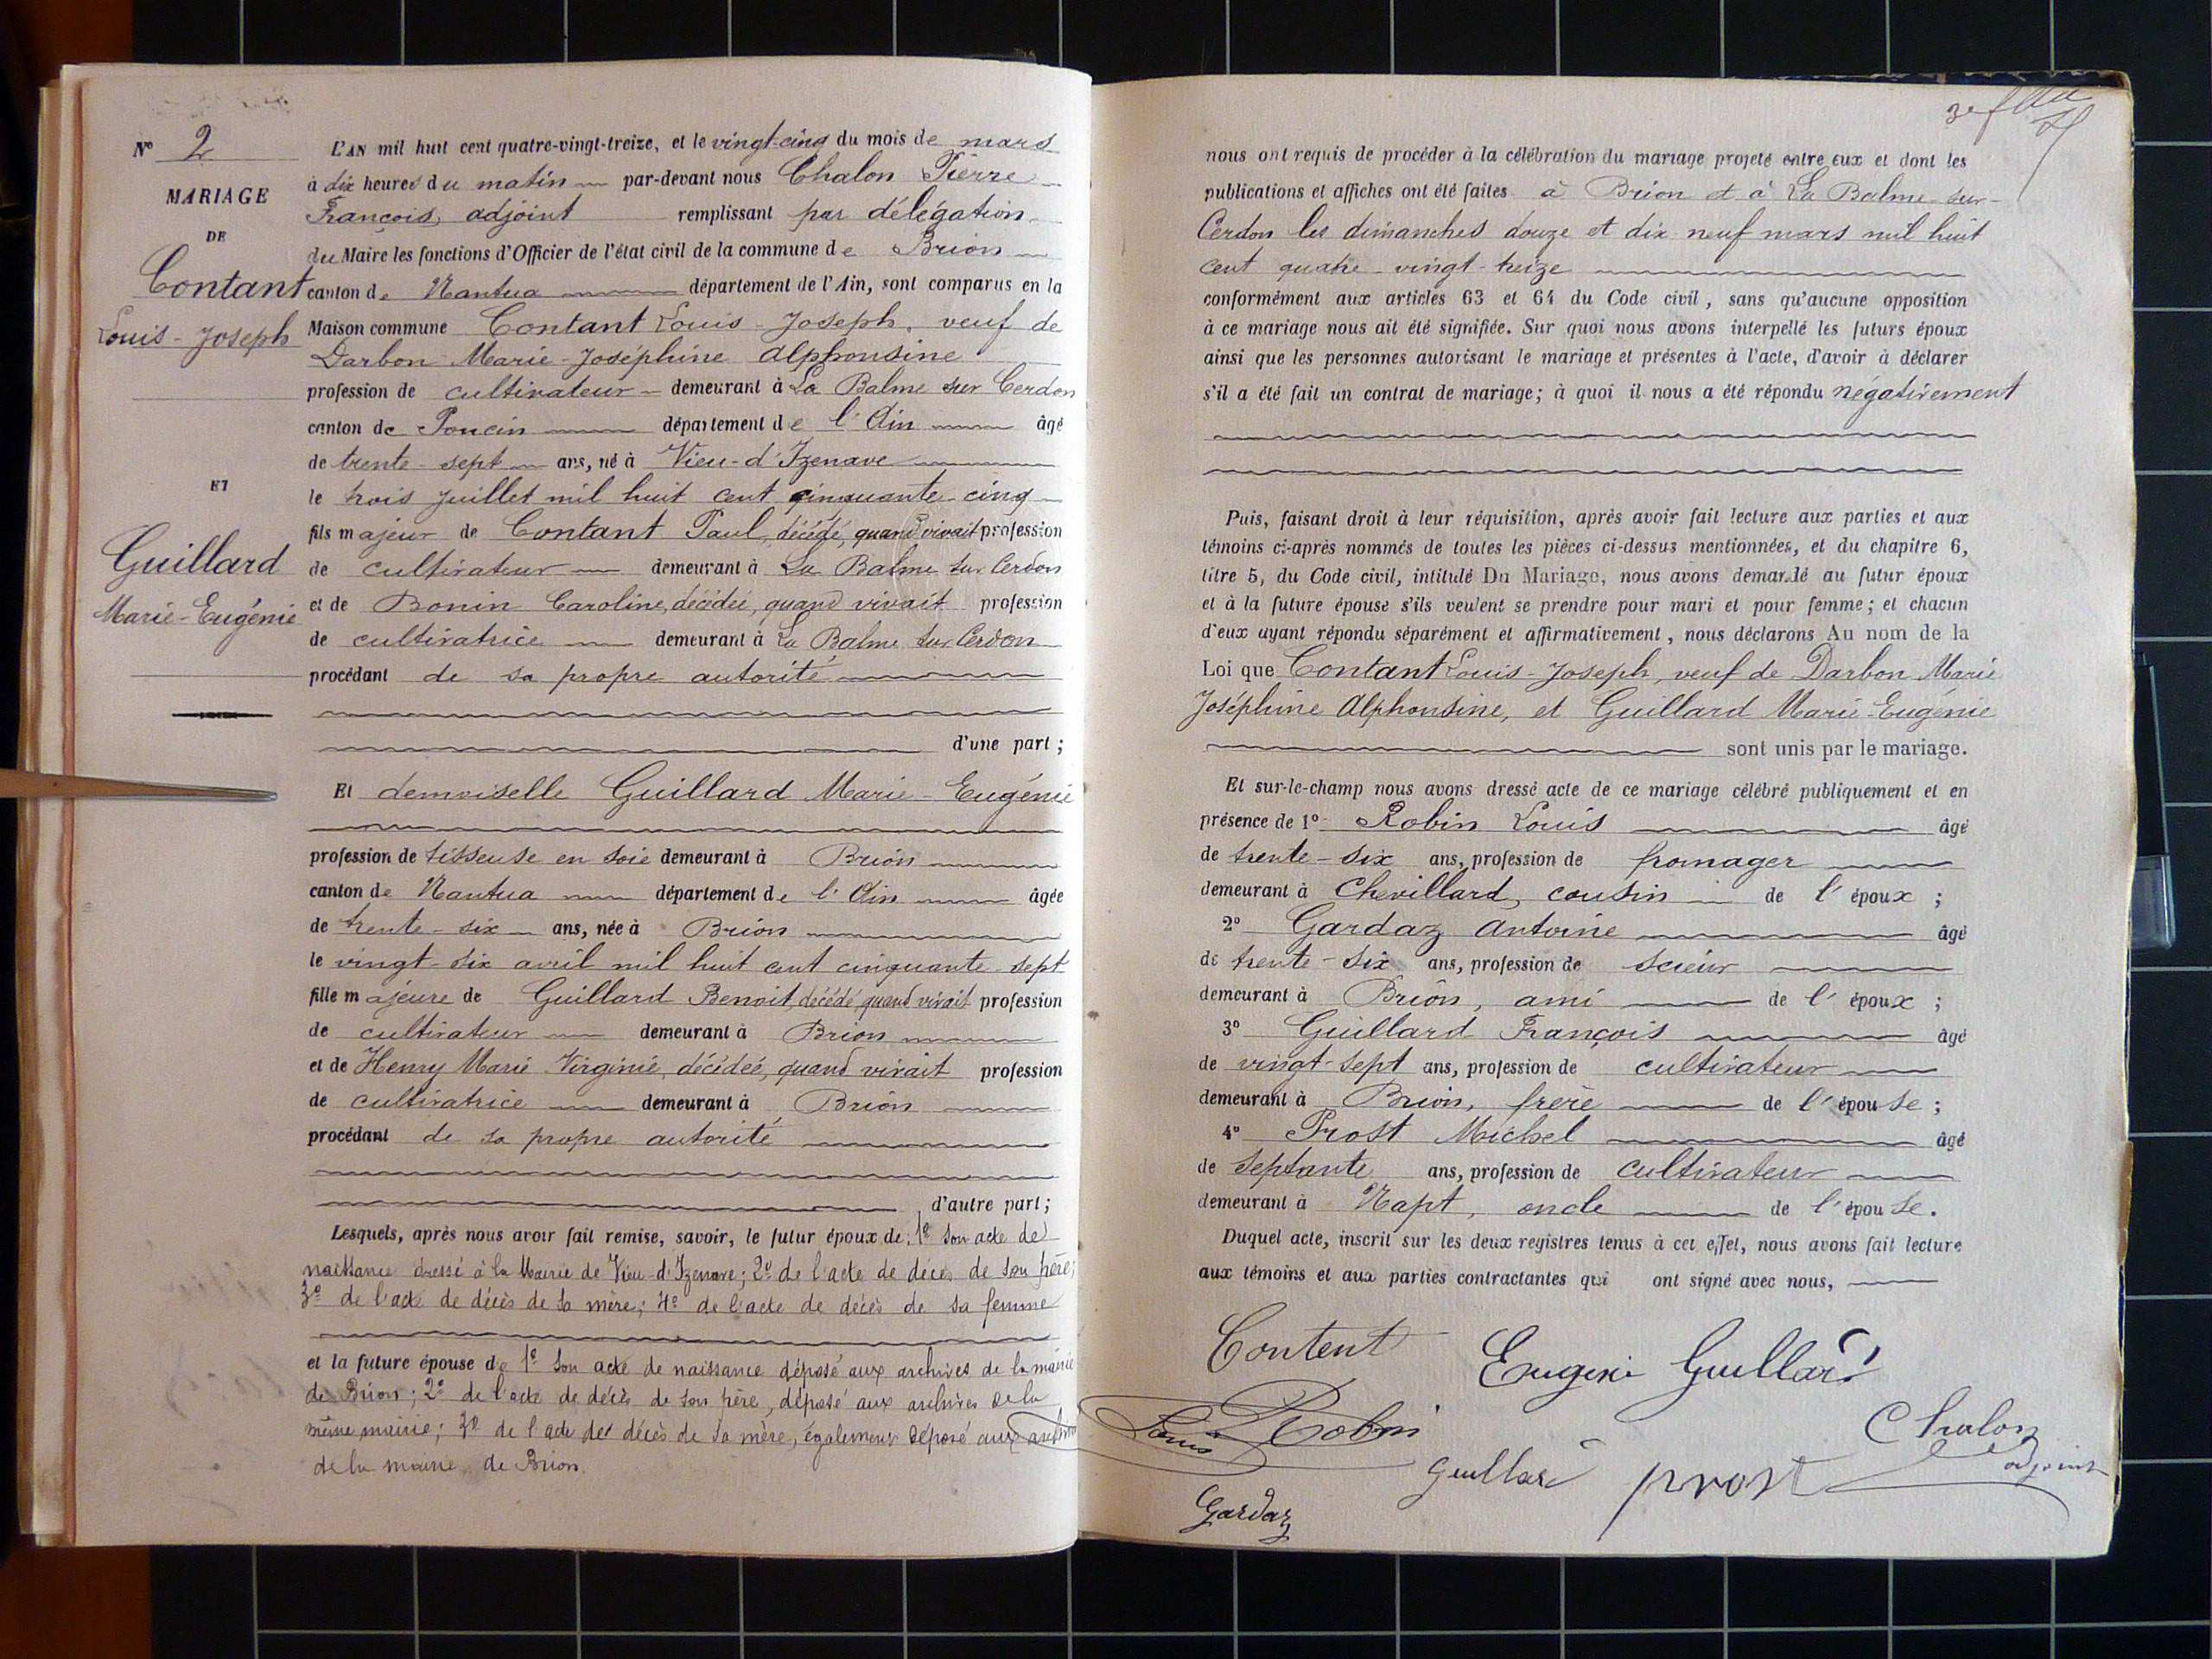 N° 2
MARIAGE
DE
Contant
Louis-Joseph
ET
Guillard
Marie-Eugénie
L'AN mil huit cent quatre-vingt-treize, et le vingt-cinq du mois de mars
à dix heures du matin par-devant nous Chalon Pierre
François, adjoint remplissant par délégation
du Maire les fonctions d'Officier de l'état civil de la commune de Brion
canton de Nantua département de l'Ain, sont comparus en la
Maison commune Contant Louis-Joseph, veuf de
Darbon Marie-Joséphine Alphonsine
profession de cultivateur demeurant à La Balme sur Cerdon
canton de Poncin département de l'Ain âgé
de trente-sept ans, né à Vieu-d'Izenave
le trois juillet mil huit cent cinquante-cinq
fils majeur de Contant Paul, décédé, quand vivait profession
de cultivateur demeurant à La Balme sur Cerdon
et de Bonin Caroline, décédée, quand vivait profession
de cultivatrice demeurant à La Balme sur Cerdon
procédant de sa propre autorité
d'une part;
Et demoiselle Guillard Marie-Eugénie
profession de tisseuse en soie demeurant à Brion
canton de Nantua département de l'Ain âgée
de trente-six ans, née à Brion
le vingt-six avril mil huit cent cinquante-sept
fille majeure de Guillard Benoit, décédé, quand vivait profession
de cultivateur demeurant à Brion
et de Henry Marie Virginie, décédée, quand vivait profession
de cultivatrice demeurant à Brion
procédant de sa propre autorité
d'autre part;
Lesquels, après nous avoir fait remise, savoir, le futur époux de: 1° son acte de
naissance dressé à la Mairie de Vieu-d'Izenave; 2° de l'acte de décès de son père;
3° de l'acte de décès de sa mère; 4° de l'acte de décès de sa femme
et la future épouse de 1° son acte de naissance déposé aux archives de la mairie
de Brion; 2° de l'acte de décès de son père, déposé aux archives de la
même mairie; 3° de l'acte de décès de sa mère, également déposé aux archives
de la mairie de Brion.
nous ont requis de procéder à la célébration du mariage projeté entre eux et dont les
publications et affiches ont été faites à Brion et à La Balme-sur-
Cerdon les dimanches douze et dix neuf mars mil huit
cent quatre-vingt-treize
conformément aux articles 63 et 64 du Code civil, sans qu'aucune opposition
à ce mariage nous ait été signifiée. Sur quoi nous avons interpellé les futurs époux
ainsi que les personnes autorisant le mariage et présentes à l'acte, d'avoir à déclarer
s'il a été fait un contrat de mariage; à quoi il nous a été répondu négativement
Puis, faisant droit à leur réquisition, après avoir fait lecture aux parties et aux
témoins ci-après nommés de toutes les pièces ci-dessus mentionnées, et du chapitre 6,
titre 5, du Code civil, intitulé Du Mariage, nous avons demandé au futur époux
et à la future épouse s'ils veulent se prendre pour mari et pour femme; et chacun
d'eux ayant répondu séparément et affirmativement, nous déclarons Au nom de la
Loi que Contant Louis-Joseph, veuf de Darbon Marie
Joséphine Alphonsine, et Guillard Marie-Eugénie
sont unis par le mariage.
Et sur-le-champ nous avons dressé acte de ce mariage célébré publiquement et en
présence de 1° Robin Louis âgé
de trente-six ans, profession de fromager
demeurant à Chevillard, cousin de l'époux;
2° Gardaz Antoine âgé
de trente-six ans, profession de scieur
demeurant à Brion, ami de l'époux;
3° Guillard François âgé
de vingt-sept ans, profession de cultivateur
demeurant à Brion, frère de l'épouse;
4° Prost Michel âgé
de septante ans, profession de cultivateur
demeurant à Napt, oncle de l'épouse.
Duquel acte, inscrit sur les deux registres tenus à cet effet, nous avons fait lecture
aux témoins et aux parties contractantes qui ont signé avec nous,
Content Eugenie Guillard
Louis Robin Chalon
adjoint
Guillard prost
Gardaz